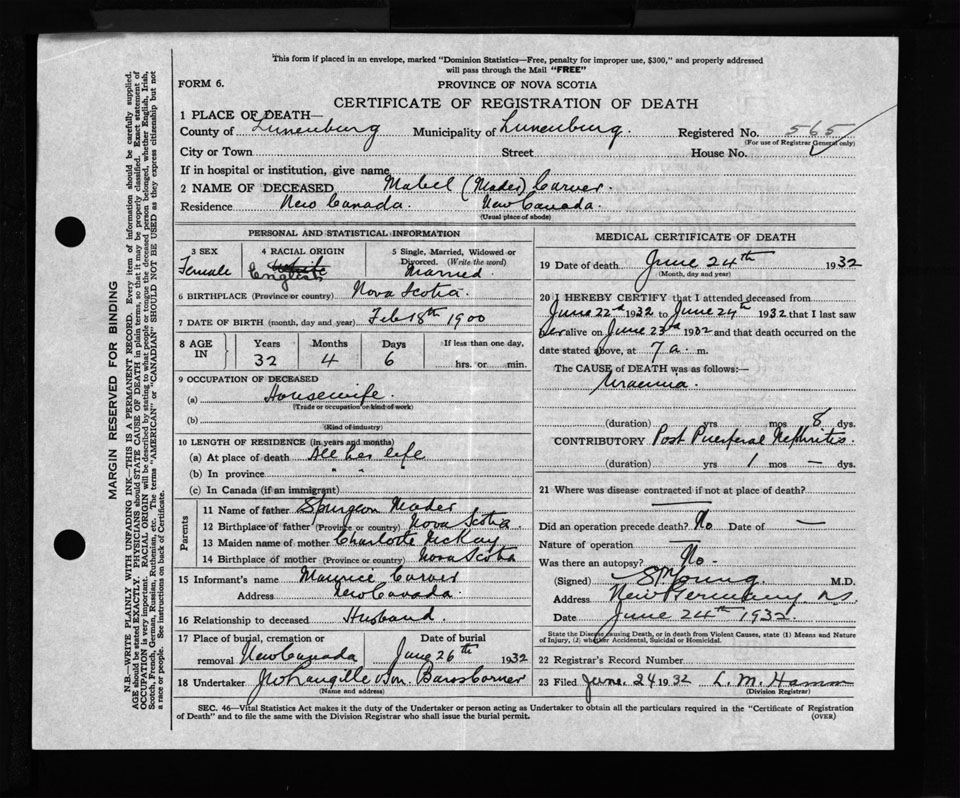 This form if placed in an envelope, marked "Dominion Statistics—Free, penalty for improper use, $300," and properly addressed
will pass through the Mail "FREE"
FORM 6.
PROVINCE OF NOVA SCOTIA
CERTIFICATE OF REGISTRATION OF DEATH
1 PLACE OF DEATH—
County of Lunenburg Municipality of Lunenburg. Registered No. 565
(For use of Registrar General only)
City or Town Street House No.
If in hospital or institution, give name
2 NAME OF DECEASED Mabel (Mader) Carver.
Residence New Canada. New Canada.
(Usual place of abode)
PERSONAL AND STATISTICAL INFORMATION
3 SEX 4 RACIAL ORIGIN 5 Single, Married, Widowed or
Divorced. (Write the word)
Female English Married
6 BIRTHPLACE (Province or country) Nova Scotia.
7 DATE OF BIRTH (month, day and year) Feb 18th 1900
8 AGE IN Years Months Days If less than one day,
32 4 6 hrs. or min.
9 OCCUPATION OF DECEASED
(a) Housewife.
(Trade or occupation or kind of work)
(b)
(Kind of industry)
10 LENGTH OF RESIDENCE (in years and months)
(a) At place of death All her life
(b) In province " "
(c) In Canada (if an immigrant)
Parents
11 Name of father Spurgeon Mader
12 Birthplace of father (Province or country) Nova Scotia.
13 Maiden name of mother Charlotte McKay
14 Birthplace of mother (Province or country) Nova Scotia
15 Informant's name Maurice Carver
Address New Canada.
16 Relationship to deceased Husband.
17 Place of burial, cremation or Date of burial
removal New Canada June 26th 1932
18 Undertaker & Son. Barss Corner
(Name and address)
MEDICAL CERTIFICATE OF DEATH
19 Date of death June 24th 1932
(Month, day and year)
20 I HEREBY CERTIFY that I attended deceased from
June 22nd 1932 to June 24th 1932 that I last saw
her alive on June 23rd 1932 and that death occurred on
the date stated above, at 7 a. m.
The CAUSE of DEATH was as follows:—
Uraemia.
(duration) yrs mos 8 dys.
CONTRIBUTORY Post Puerperal Nephritis.
(duration) yrs 1 mos — dys.
21 Where was disease contracted if not at place of death?
Did an operation precede death? No Date of —
Nature of operation —
Was there an autopsy? No.
(Signed) Young. M.D.
Address New Germany, N.S.
Date June 24th 1932.
State the Disease causing Death, or in death from Violent Causes, state (1) Means and Nature
of Injury, (2) whether Accidental, Suicidal or Homicidal.
22 Registrar's Record Number
23 Filed June, 24 1932 L. M. Hamm
(Division Registrar)
SEC. 46—Vital Statistics Act makes it the duty of the Undertaker or person acting as Undertaker to obtain all the particulars required in the "Certificate of Registration
of Death" and to file the same with the Division Registrar who shall issue the burial permit.
(OVER)
MARGIN RESERVED FOR BINDING
N.B.—WRITE PLAINLY WITH UNFADING INK—THIS IS A PERMANENT RECORD. Every item of information should be carefully supplied.
AGE should be stated EXACTLY. PHYSICIANS should STATE CAUSE OF DEATH in plain terms, so that it may be properly classified. Exact statement of
OCCUPATION is very important. RACIAL ORIGIN will be described by stating to what people or tongue the deceased person belonged, whether English, Irish,
Scotch, French, German, Russian, Ruthenian, etc. The terms "AMERICAN" or "CANADIAN" SHOULD NOT BE USED as they express citizenship but not
a race or people. See instructions on back of Certificate.